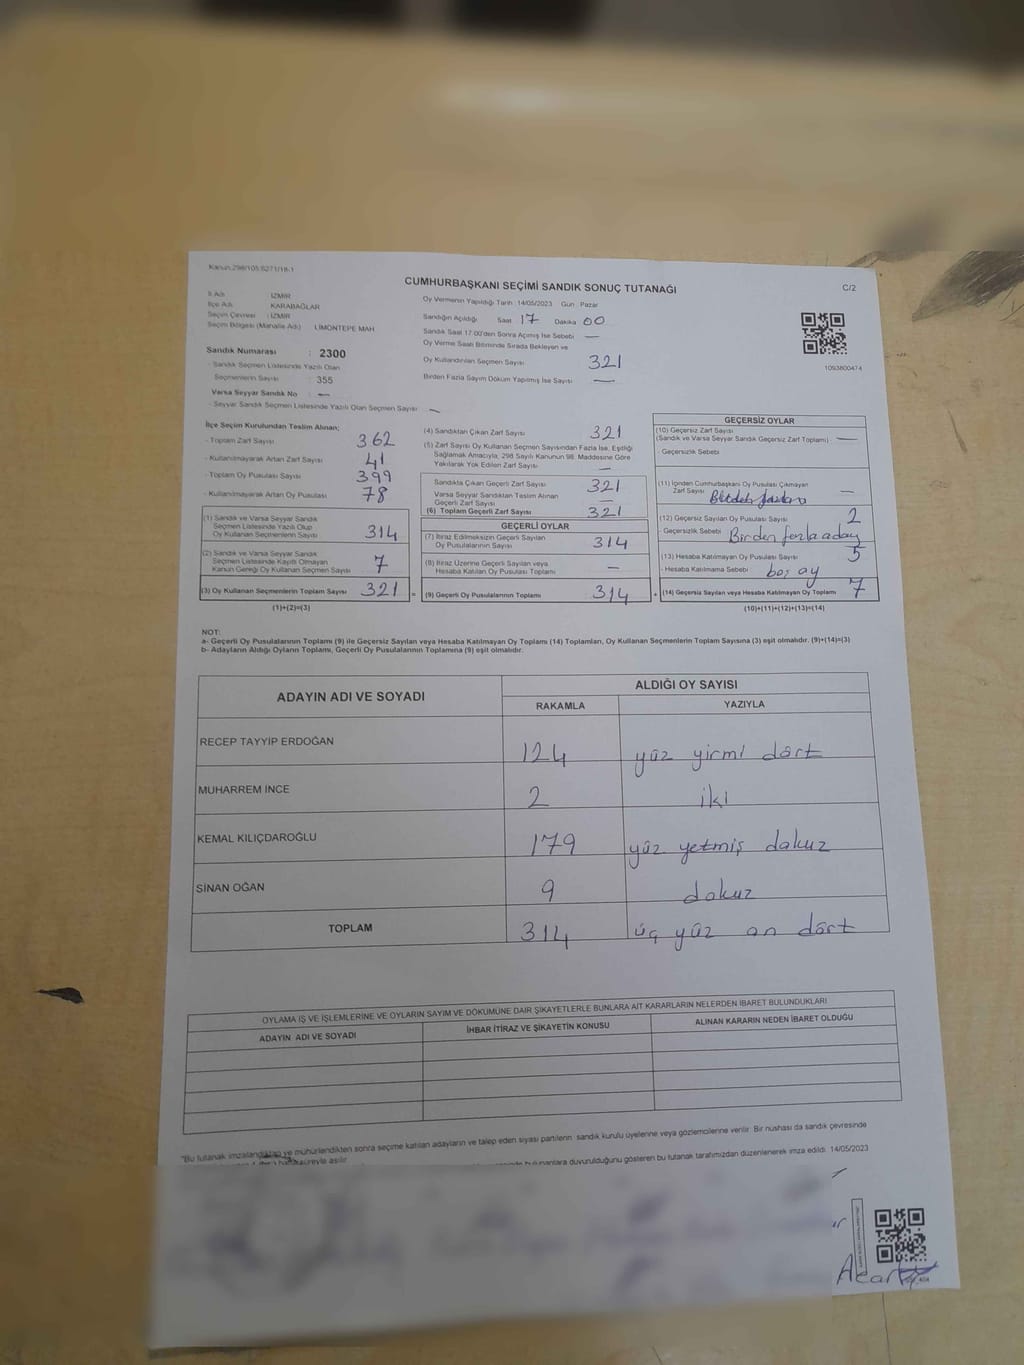 Kanun:298/105;6271/18-1
CUMHURBAŞKANI SEÇİMİ SANDIK SONUÇ TUTANAĞI
C/2
İl Adı : İZMİR
İlçe Adı : KARABAĞLAR
Seçim Çevresi : İZMİR
Seçim Bölgesi (Mahalle Adı) LİMONTEPE MAH
Sandık Numarası : 2300
- Sandık Seçmen Listesinde Yazılı Olan
Seçmenlerin Sayısı : 355
Varsa Seyyar Sandık No : —
- Seyyar Sandık Seçmen Listesinde Yazılı Olan Seçmen Sayısı : —
Oy Vermenin Yapıldığı Tarih : 14/05/2023 Gün : Pazar
Sandığın Açıldığı Saat 17 Dakika 00
Sandık Saat 17:00'den Sonra Açımış İse Sebebi —
Oy Verme Saati Bitiminde Sırada Bekleyen ve
Oy Kullandırılan Seçmen Sayısı 321
Birden Fazla Sayım Döküm Yapılmış İse Sayısı —
1093800474
İlçe Seçim Kurulundan Teslim Alınan;
- Toplam Zarf Sayısı 362
- Kullanılmayarak Artan Zarf Sayısı 41
- Toplam Oy Pusulası Sayısı 399
- Kullanılmayarak Artan Oy Pusulası 78
(1) Sandık ve Varsa Seyyar Sandık
Seçmen Listesinde Yazılı Olup
Oy Kullanan Seçmenlerin Sayısı 314
(2) Sandık ve Varsa Seyyar Sandık
Seçmen Listesinde Kayıtlı Olmayan
Kanun Gereği Oy Kullanan Seçmen Sayısı 7
(3) Oy Kullanan Seçmenlerin Toplam Sayısı 321 =
(1)+(2)=(3)
(4) Sandıktan Çıkan Zarf Sayısı 321
(5) Zarf Sayısı Oy Kullanan Seçmen Sayısından Fazla İse, Eşitliği
Sağlamak Amacıyla, 298 Sayılı Kanunun 98. Maddesine Göre
Yakılarak Yok Edilen Zarf Sayısı —
Sandıkta Çıkan Geçerli Zarf Sayısı 321
Varsa Seyyar Sandıktan Teslim Alınan
Geçerli Zarf Sayısı —
(6) Toplam Geçerli Zarf Sayısı 321
GEÇERLİ OYLAR
(7) İtiraz Edilmeksizin Geçerli Sayılan
Oy Pusulalarının Sayısı 314
(8) İtiraz Üzerine Geçerli Sayılan veya
Hesaba Katılan Oy Pusulası Toplamı —
(9) Geçerli Oy Pusulalarının Toplamı 314 +
GEÇERSİZ OYLAR
(10) Geçersiz Zarf Sayısı
(Sandık ve Varsa Seyyar Sandık Geçersiz Zarf Toplamı) —
- Geçersizlik Sebebi
(11) İçinden Cumhurbaşkanı Oy Pusulası Çıkmayan
Zarf Sayısı —
(12) Geçersiz Sayılan Oy Pusulası Sayısı 2
- Geçersizlik Sebebi Birden fazla aday
(13) Hesaba Katılmayan Oy Pusulası Sayısı 5
- Hesaba Katılmama Sebebi boş oy
(14) Geçersiz Sayılan veya Hesaba Katılmayan Oy Toplamı 7
(10)+(11)+(12)+(13)=(14)
NOT:
a- Geçerli Oy Pusulalarının Toplamı (9) ile Geçersiz Sayılan veya Hesaba Katılmayan Oy Toplamı (14) Toplamları, Oy Kullanan Seçmenlerin Toplam Sayısına (3) eşit olmalıdır. (9)+(14)=(3)
b- Adayların Aldığı Oyların Toplamı, Geçerli Oy Pusulalarının Toplamına (9) eşit olmalıdır.
ADAYIN ADI VE SOYADI
ALDIĞI OY SAYISI
RAKAMLA YAZIYLA
RECEP TAYYİP ERDOĞAN 124 yüz yirmi dört
MUHARREM İNCE 2 iki
KEMAL KILIÇDAROĞLU 179 yüz yetmiş dokuz
SİNAN OĞAN 9 dokuz
TOPLAM 314 üç yüz on dört
OYLAMA İŞ VE İŞLEMLERİNE VE OYLARIN SAYIM VE DÖKÜMÜNE DAİR ŞİKAYETLERLE BUNLARA AİT KARARLARIN NELERDEN İBARET BULUNDUKLARI
ADAYIN ADI VE SOYADI İHBAR İTİRAZ VE ŞİKAYETİN KONUSU ALINAN KARARIN NEDEN İBARET OLDUĞU
"Bu tutanak imzalandıktan ve mühürlendikten sonra seçime katılan adayların ve talep eden siyasi partilerin sandık kurulu üyelerine veya gözlemcilerine verilir. Bir nüshası da sandık çevresinde
süreyle asılır duyurulduğunu gösteren bu tutanak tarafımızdan düzenlenerek imza edildi. 14/05/2023